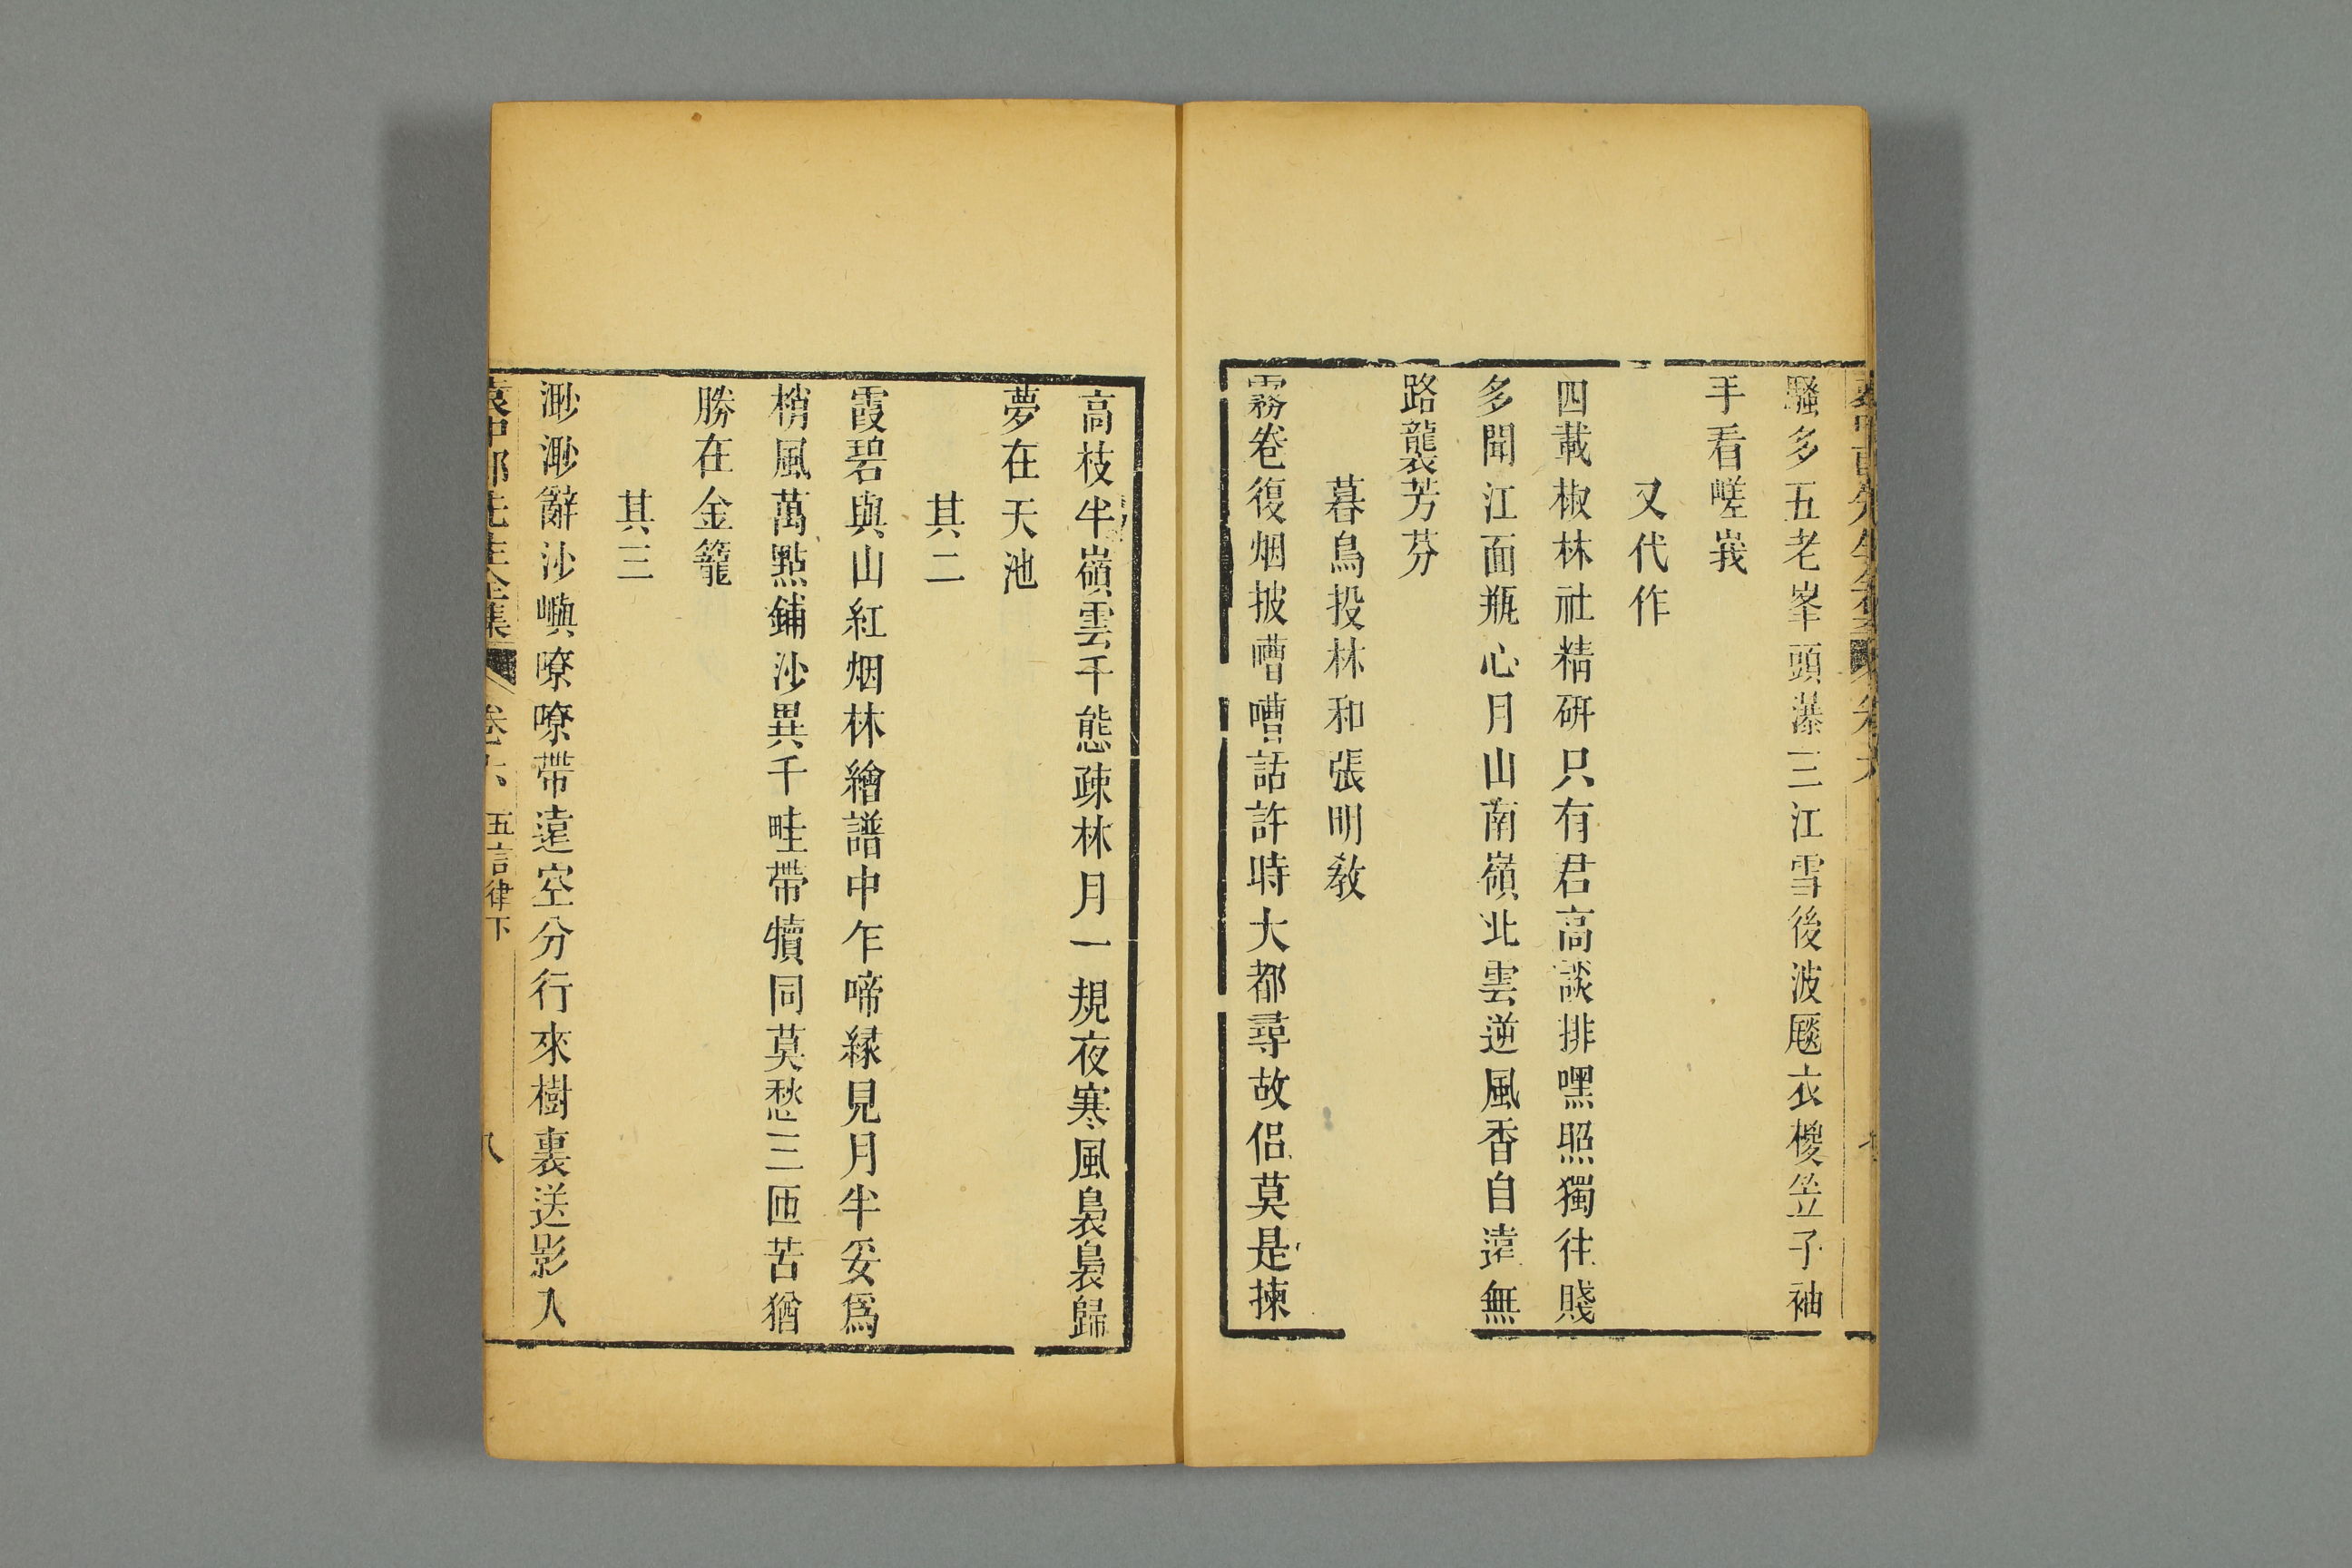 騷多五老峯頭瀑三江雪後波颼衣椶笠子袖
手看嵯峩
又代作
四載椒林社精研只有君高談排嘿照獨往賤
多聞江面瓶心月山南嶺北雲逆風香自遠無
路襲芳芬
暮鳥投林和張明教
霧卷復烟披嘈嘈話許時大都尋故侶莫是揀
高枝半嶺雲千態疎林月一規夜寒風裊裊歸
夢在天池
其二
霞碧與山紅烟林繪譜中乍啼緑見月半妥爲
梢風萬點鋪沙異千畦帶犢同莫愁三匝苦猶
勝在金籠
其三
渺渺辭沙嶼嘹嘹帶遠空分行來樹裏送影入
袁中郎先生全集 卷六 五言律下 八